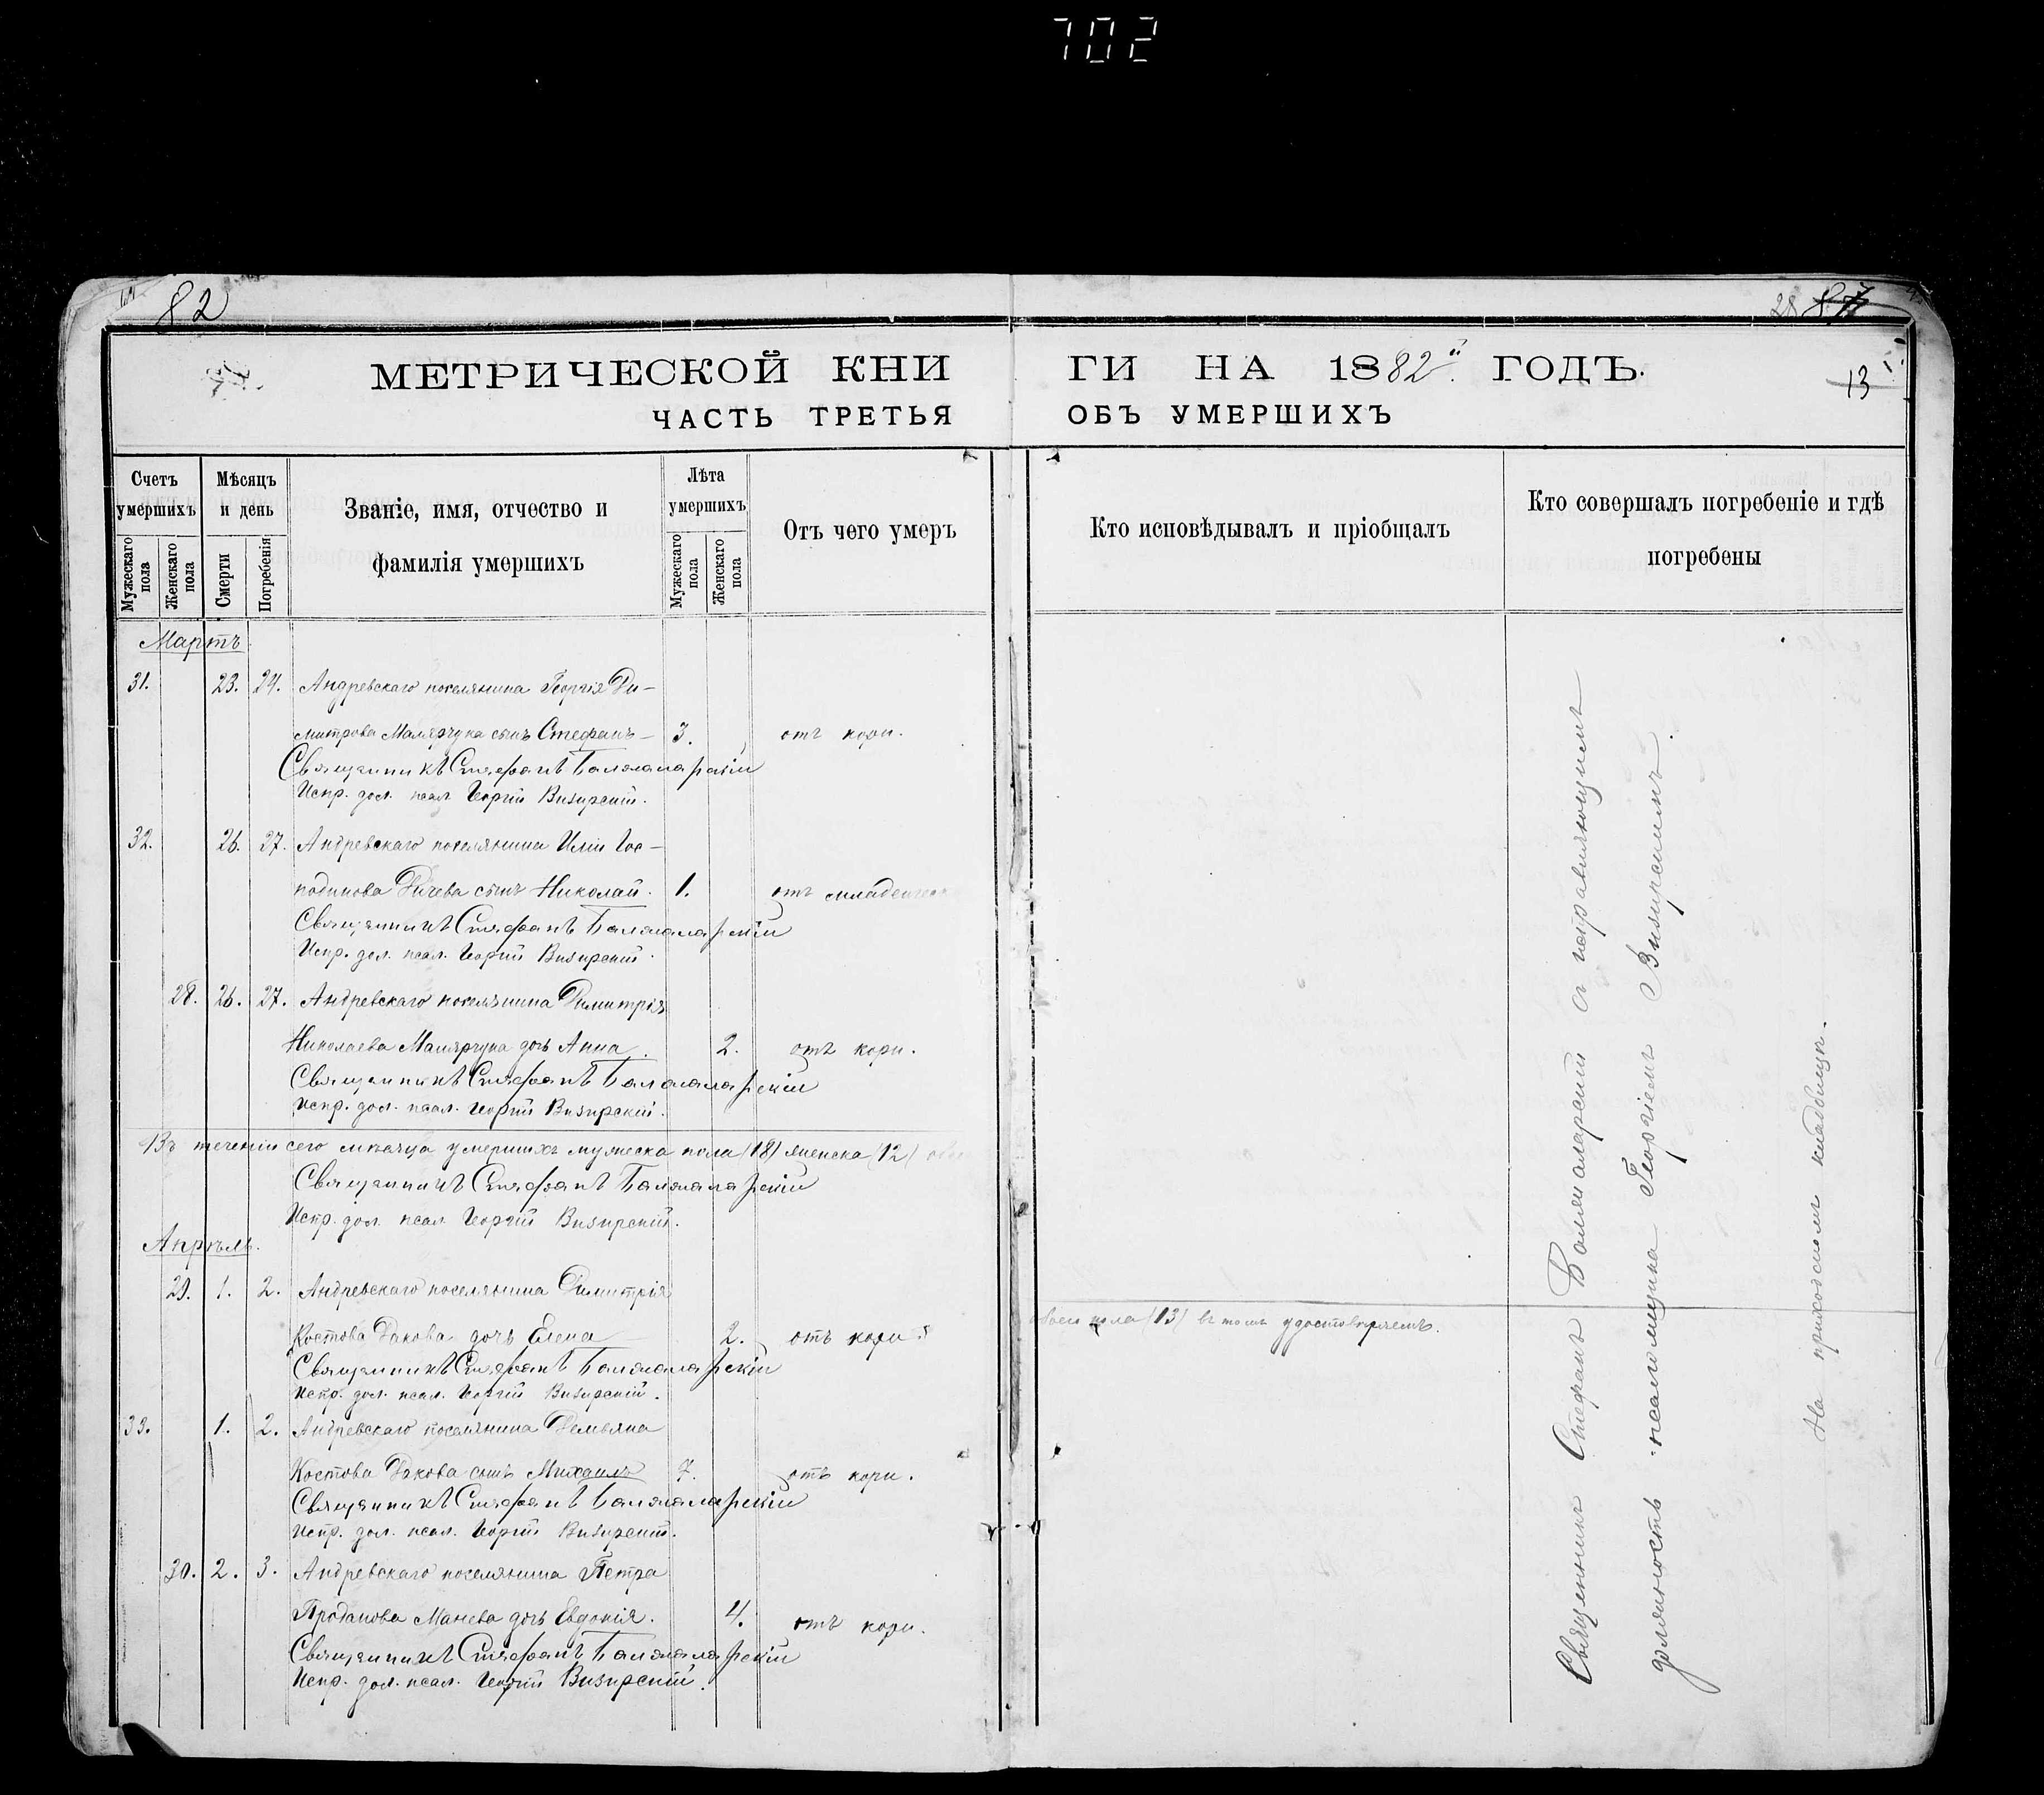 702
82
28 87
МЕТРИЧЕСКОЙ КНИ
ГИ НА 1882й ГОДЪ.
13
ЧАСТЬ ТРЕТЬЯ
ОБЪ УМЕРШИХЪ
Счетъ умершихъ
Мужескаго пола
Женскаго пола
Мѣсяцъ и день
Смерти
Погребенія
Званіе, имя, отчество и
фамилія умершихъ
Лѣта умершихъ
Мужескаго пола
Женскаго пола
Отъ чего умеръ
Кто исповѣдывалъ и пріобщалъ
Кто совершалъ погребеніе и гдѣ
погребены
Мартъ
31. 23. 24. Андревскаго поселянина Георгія Ди-
митрова Малярчука сынъ Стефанъ 3. отъ кори.
Священникъ Стефанъ
Испр. дол. псал. Георгій Визирскій.
32. 26. 27. Андревскаго поселянина Иліи Гос-
подинова сынъ Николай. 1. отъ
Священникъ Стефанъ
Испр. дол. псал. Георгій Визирскій.
28. 26. 27. Андревскаго поселянина Димитрія
Николаева Малярчука дочь Анна. 2. отъ кори.
Священникъ Стефанъ
Испр. дол. псал. Георгій Визирскій.
Въ теченіи сего мѣсяца умершихъ мужеска пола (18) женска (12)
Священникъ Стефанъ
Испр. дол. псал. Георгій Визирскій.
Апрѣль.
29. 1. 2. Андревскаго поселянина Димитрія
Костова Дакова дочь Елена 2. отъ кори.
Священникъ Стефанъ
Испр. дол. псал. Георгій Визирскій.
33. 1. 2. Андревскаго поселянина Демьяна
Костова Дакова сынъ Михаилъ 7. отъ кори.
Священникъ Стефанъ
Испр. дол. псал. Георгій Визирскій.
30. 2. 3. Андревскаго поселянина Петра
Проданова Манева дочь Евдокія. 4. отъ кори.
Священникъ Стефанъ
Испр. дол. псал. Георгій Визирскій.
обоего пола (13) въ томъ удостовѣряемъ.
Священникъ Стефанъ съ исправляющимъ
должность псаломщика Георгіемъ Визирскимъ.
На приходскомъ кладбищѣ.